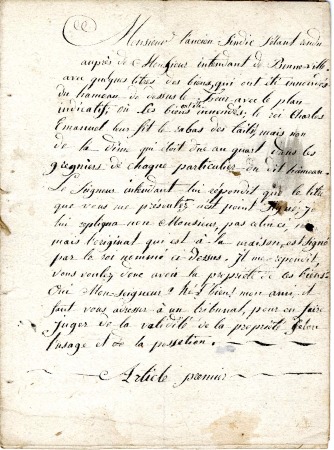 Monsieur l'ancien Sindic s'étant rendu
auprès de Monsieur intendant de Bonneville
avec quelques titres des biens, qui ont été innondés
du hameau de dessus le avec le plan
indicatif, où les biens innondés, le roi Charles
Emanuel leur fit le rabas des tailles, mais non
de la dîme qui doit être au quart dans les
greniers de chaque particulier du dit hameau
Le Seigneur intendant lui répondit que le titre
que vous me présentez n'est point signé; je
lui répliqua non Monsieur, pas celui ci
mais l'original qui est à la maison, est signé
par le roi nommé ci dessus. Il me répondit,
vous voulez donc avoir la propriété de ces biens
Oui Monseigneur? Hé! bien! mon ami, il
faut vous adresser à un tribunal, pour en faire
Juger de la validité de la propriété selon
l'usage et de la possession.
Article premier